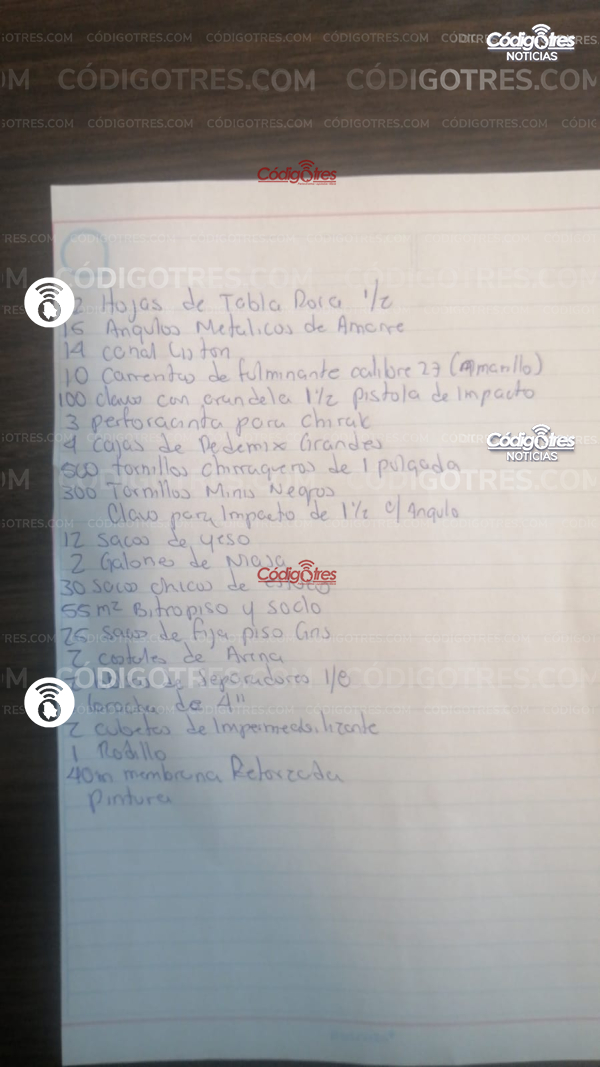 CódigOtres
NOTICIAS
CÓDIGOTRES.COM
CódigOtres
2 Hojas de Tabla Roca 1/2
15 Angulos Metalicos de Amarre
14 canal Liston
10 Carreritas de fulminante calibre 27 (Amarillo)
100 clavo con arandela 1 1/2 pistola de Impacto
3 perforacinta para chirak
4 Cajas de Redemix Grandes
CódigOtres
NOTICIAS
500 tornillos chirraqueros de 1 pulgada
300 Tornillos Minis Negros
Clavo para Impacto de 1 1/2 c/Angulo
12 sacos de yeso
2 Galones de
CódigOtres
30 sacos chicos de
55 m2 Bitropiso y soclo
25 sacos de fija piso Gris
2 costales de Arena
de separadores 1/8
de 4"
2 cubetas de Impermeabilizante
1 Rodillo
40m membrana Reforzada
Pintura